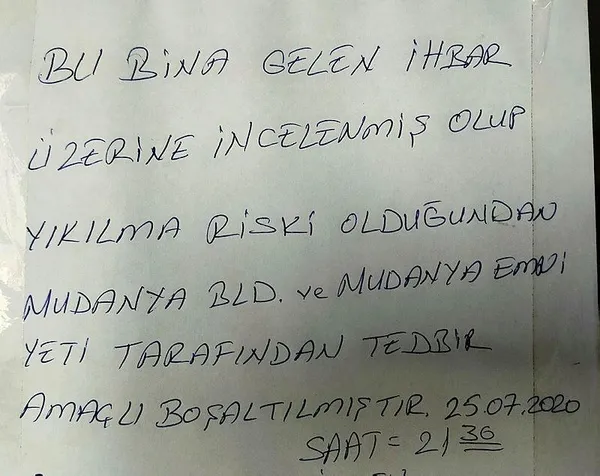 BU BİNA GELEN İHBAR
ÜZERİNE İNCELENMİŞ OLUP
YIKILMA RİSKİ OLDUĞUNDAN
MUDANYA BLD. ve MUDANYA EMNİ
YETİ TARAFINDAN TEDBİR
AMAÇLI BOŞALTILMIŞTIR. 25.07.2020
SAAT = 21 36